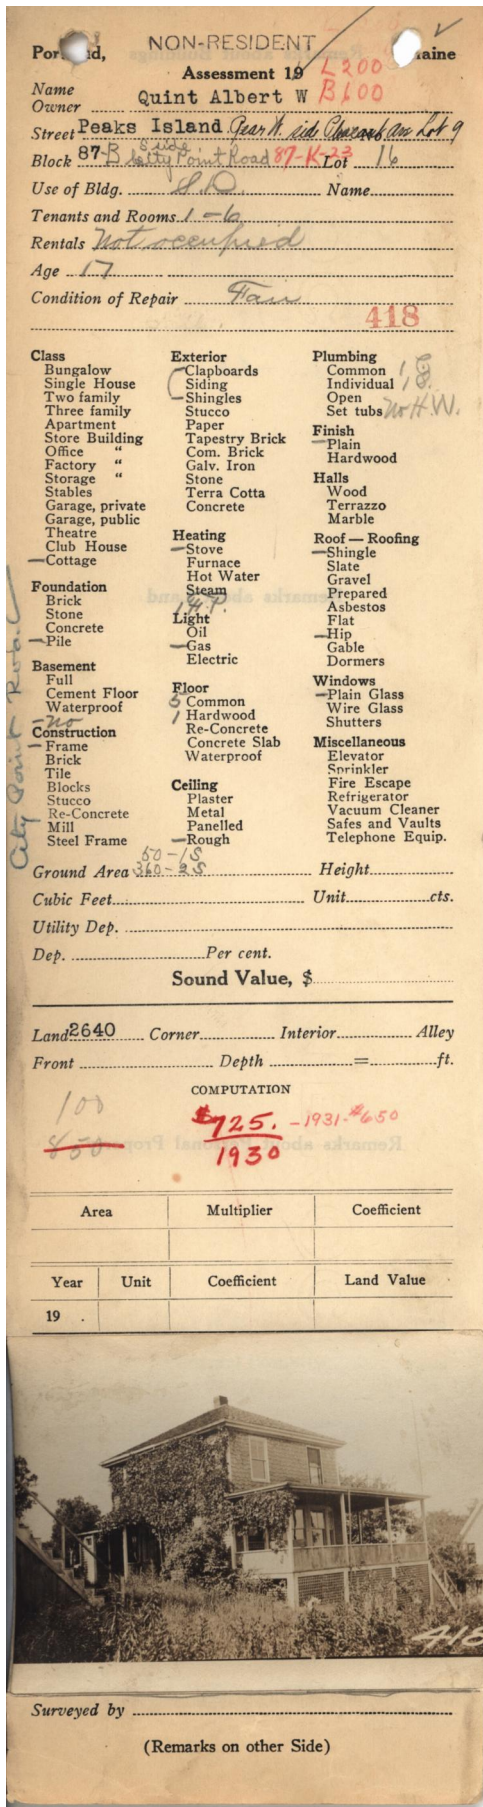 NON-RESIDENT
Portland, Maine
Assessment 19 L 200
Name Owner Quint Albert W B 600
Street Peaks Island Rear W. side Lot 9
Block 87-B side City Point Road 87-K-23 Lot 16
Use of Bldg. S.D. Name
Tenants and Rooms 1-6
Rentals Not occupied
Age 17
Condition of Repair Fair
418
Class
Bungalow
Single House
Two family
Three family
Apartment
Store Building
Office "
Factory "
Storage "
Stables
Garage, private
Garage, public
Theatre
Club House
-Cottage
Foundation
Brick
Stone
Concrete
-Pile
Basement
Full
Cement Floor
Waterproof
-no
Construction
-Frame
Brick
Tile
Blocks
Stucco
Re-Concrete
Mill
Steel Frame
Exterior
Clapboards
Siding
-Shingles
Stucco
Paper
Tapestry Brick
Com. Brick
Galv. Iron
Stone
Terra Cotta
Concrete
Heating
-Stove
Furnace
Hot Water
Steam
1 F.P.
Light
Oil
-Gas
Electric
Floor
5 Common
1 Hardwood
Re-Concrete
Concrete Slab
Waterproof
Ceiling
Plaster
Metal
Panelled
-Rough
Plumbing
Common 1
Individual 1
Open
Set tubs no H.W.
Finish
-Plain
Hardwood
Halls
Wood
Terrazzo
Marble
Roof — Roofing
-Shingle
Slate
Gravel
Prepared
Asbestos
Flat
-Hip
Gable
Dormers
Windows
-Plain Glass
Wire Glass
Shutters
Miscellaneous
Elevator
Sprinkler
Fire Escape
Refrigerator
Vacuum Cleaner
Safes and Vaults
Telephone Equip.
City Point Road
50-1S
Ground Area 360-2S Height
Cubic Feet Unit cts.
Utility Dep.
Dep. Per cent.
Sound Value, $
Land 2640 Corner Interior Alley
Front Depth = ft.
COMPUTATION
100
850
$725. - 1931-$650
1930
Area Multiplier Coefficient
Year Unit Coefficient Land Value
19 .
418
Surveyed by
(Remarks on other Side)